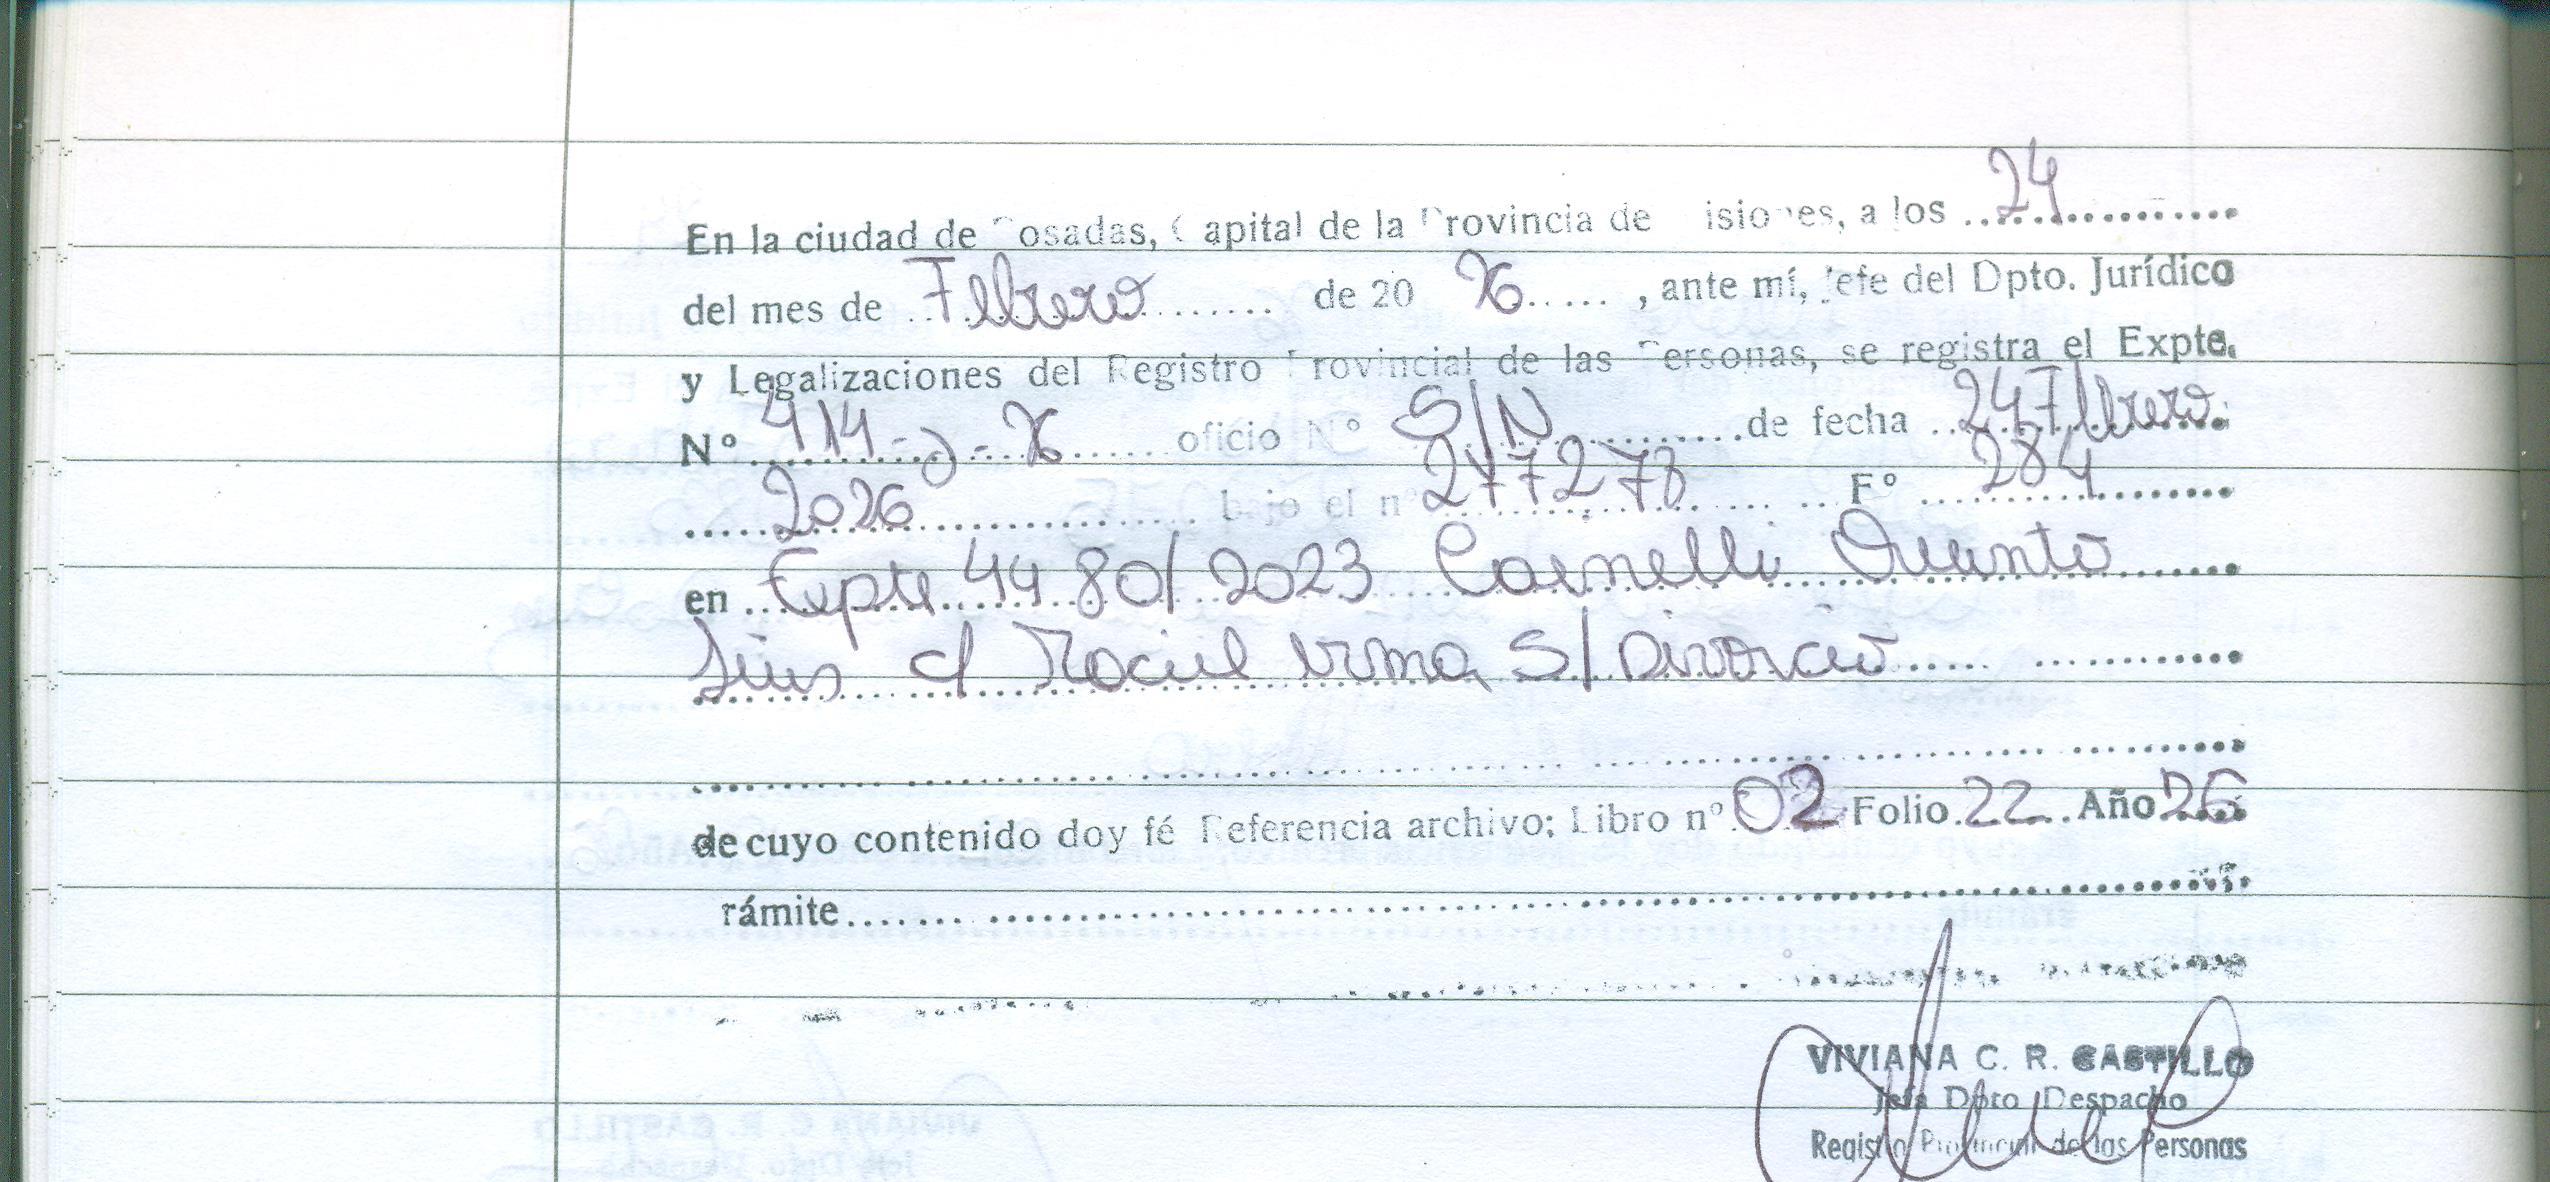 En la ciudad de Posadas, Capital de la Provincia de Misiones, a los 24
del mes de Febrero de 20 26, ante mí, Jefe del Dpto. Jurídico
y Legalizaciones del Registro Provincial de las Personas, se registra el Expte.
Nº 414-J-26 oficio Nº S/N de fecha 24 Febrero
2026 bajo el nº 277278 Fº 284
en Expte 4480/2023 Carnelli
c/ Maciel Irma S/ Divorcio
de cuyo contenido doy fé Referencia archivo: Libro nº 02 Folio 22 Año 26
rámite
VIVIANA C. R. CASTILLO
Jefa Dpto Despacho
Registro Provincial de las Personas